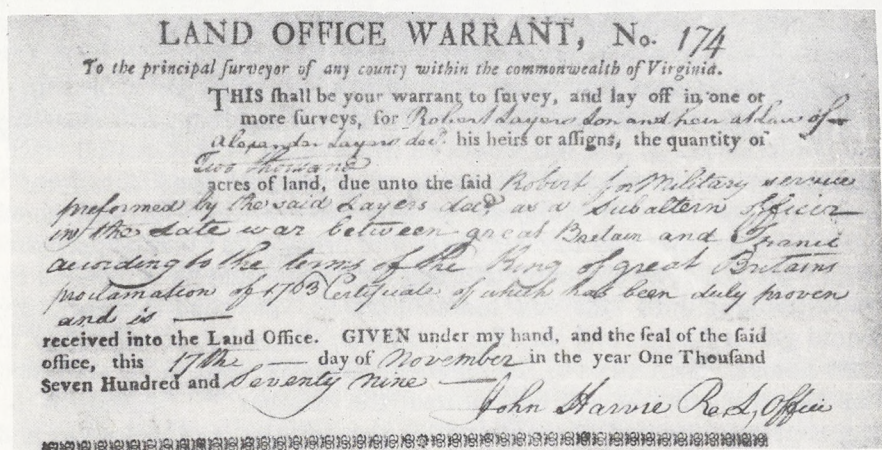 LAND OFFICE WARRANT, No. 174
To the principal surveyor of any county within the commonwealth of Virginia.
THIS shall be your warrant to survey, and lay off in one or
more surveys, for Robert Sayers Son and heir at Law of
Alexander Sayers decd. his heirs or assigns, the quantity of
Two thousand
acres of land, due unto the said Robert for Military service
preformed by the said Sayers decd. as a Subaltern officer
in the Late war between great Bretain and France
acording to the terms of the King of great Britains
proclamation of 1763 Certificate of which has been duly proven
and is —
received into the Land Office. GIVEN under my hand, and the seal of the said
office, this 17the — day of November in the year One Thousand
Seven Hundred and Seventy nine —
John Harvie Re. L, Office